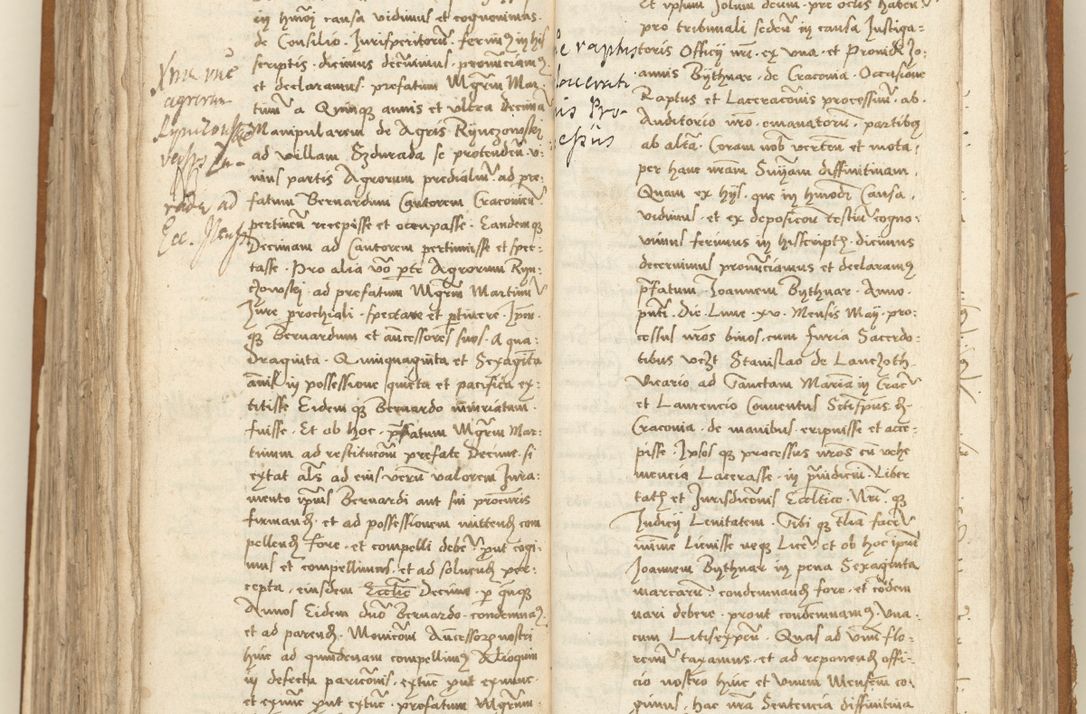 in hmoi causa vidimus et cognovimus
de Consilio Jurisperitorum ferimus in his
scriptis dicimus decernimus pronunciamus
et declaramus prefatum Mgrum Mar-
tinum a Quinque annis et ultra Decimam
Manipularem de Agris Rynczowskej
ad villam Szdurada se protenden vi-
nius partis Agrorum predialium ad pre-
fatum Bernardum Cantorem Cracovien
pertinen recepisse et occupasse Eandemque
Decimam ad Cantorem pertinuisse et spec-
tasse Pro alia vo parte Agrorum Ryn-
czowskej ad prefatum Mgrum Martinum
Jure prochiali spectare et pertinere Ipm
que Bernardum et ancessores suos A qua-
draginta Quinquaginta et Sexaginta
annis in possessione quieta et pacifica ex-
titisse Eidem que Bernardo iniuriatum
fuisse Et ob hoc prefatum Mgrum Mar-
tinum ad restitucom prefate Decime si
extat als ad eius verum valorem Jura-
mento ipius Bernardi aut sui procuris
firmand et ad possessionem mittend com
pellend fore et compelli debere prout cogi-
mus et compellimus et ad solucend per-
cepta eiusdem Ecctice Decime per quinque
Annos Eidem dno Bernardo condemnamus
et ad parend Monicom Ancessorum nostri
huic ad quindenam compellimus Alioquin
in defectu paricois extuc prout exnunc
et exnunc prout extunc prefatum Mgrum
Xma me
agrorum
versus
ad
Et ipsum Solum deum pre oclis haben
pro tribunali seden in causa Instiga-
toris Officij nri ex una et Providi Jo-
annis Bythnar de Cracovia Occasione
Raptus et Laceracois processum ab
Auditorio nro emanatorum partibus
ab altera Coram nob verten et mota
per hanc nram Suijam diffinitivam
Quam ex hijs que in hmodi Causa
vidimus et ex deposicon testium cogno-
vimus ferimus in hijs scriptis dicimus
decernimus pronunciamus et declaramus
prefatum Joannem Bythnar Anno
pnti Die Lune xv Mensis Maij pro-
cessus nros binos cum furia Sacerdo-
tibus vezt Stanislao de Lanczoth
Vicario ad Sanctam Mariam in Crac
et Laurencio Conventus Sctispus de
Cracovia de manibus eripuisse et acce-
pisse Ipsos que processus nros cu vehe
mencia Lacerasse in prejudicium Liber
tatis et Jurisdicionis Ecclice Nri que
Judicij Lenitatem Sibi que talia facere
minime Licuisse neque Licere et ob hoc ipum
Joannem Bythnar in pena Sexaginta
marcarum condemnand fore et eodem
nari debere prout condemnamus Una
cum Litisexpen Quas ad unum flo-
renum taxamus et ad reponend offi-
cio nostro huic et Unum Mensem co-
gimus hac nra Sentencia diffinitiva
raptus